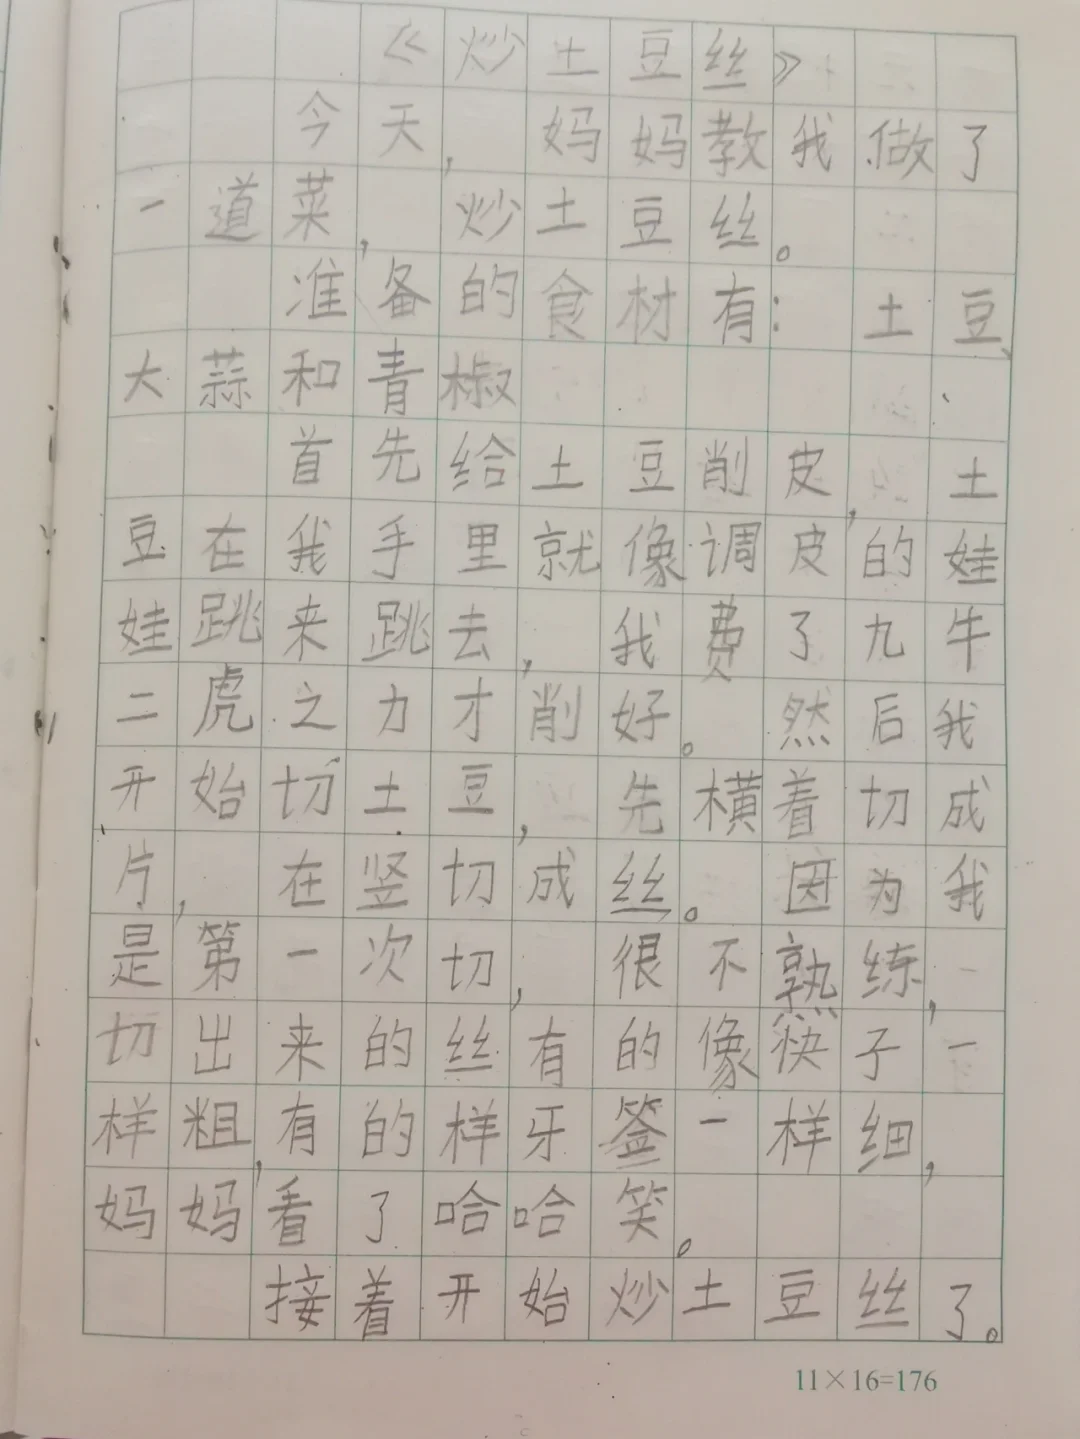 《炒土豆丝》
今天,妈妈教我做了
一道菜,炒土豆丝。
准备的食材有:土豆、
大蒜和青椒
首先给土豆削皮,土
豆在我手里就像调皮的娃
娃跳来跳去,我费了九牛
二虎之力才削好。然后我
开始切土豆,先横着切成
片,在竖切成丝。因为我
是第一次切,很不熟练,
切出来的丝有的像筷子一
样粗,有的样牙签一样细,
妈妈看了哈哈笑。
接着开始炒土豆丝了。
11×16=176